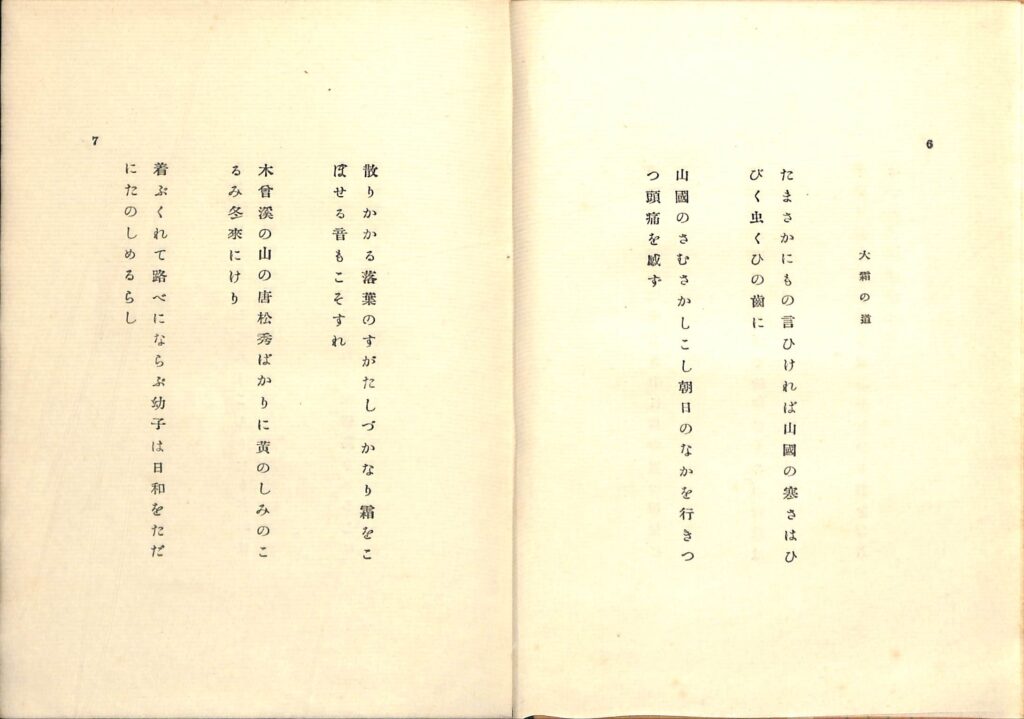 6
大霜の道
たまさかにもの言ひければ山國の寒さはひ
びく虫くひの齒に
山國のさむさかしこし朝日のなかを行きつ
つ頭痛を感ず
散りかかる落葉のすがたしづかなり霜をこ
ぼせる音もこそすれ
木曾溪の山の唐松秀ばかりに黄のしみのこ
るみ冬來にけり
着ぶくれて路べにならぶ幼子は日和をただ
にたのしめるらし
7